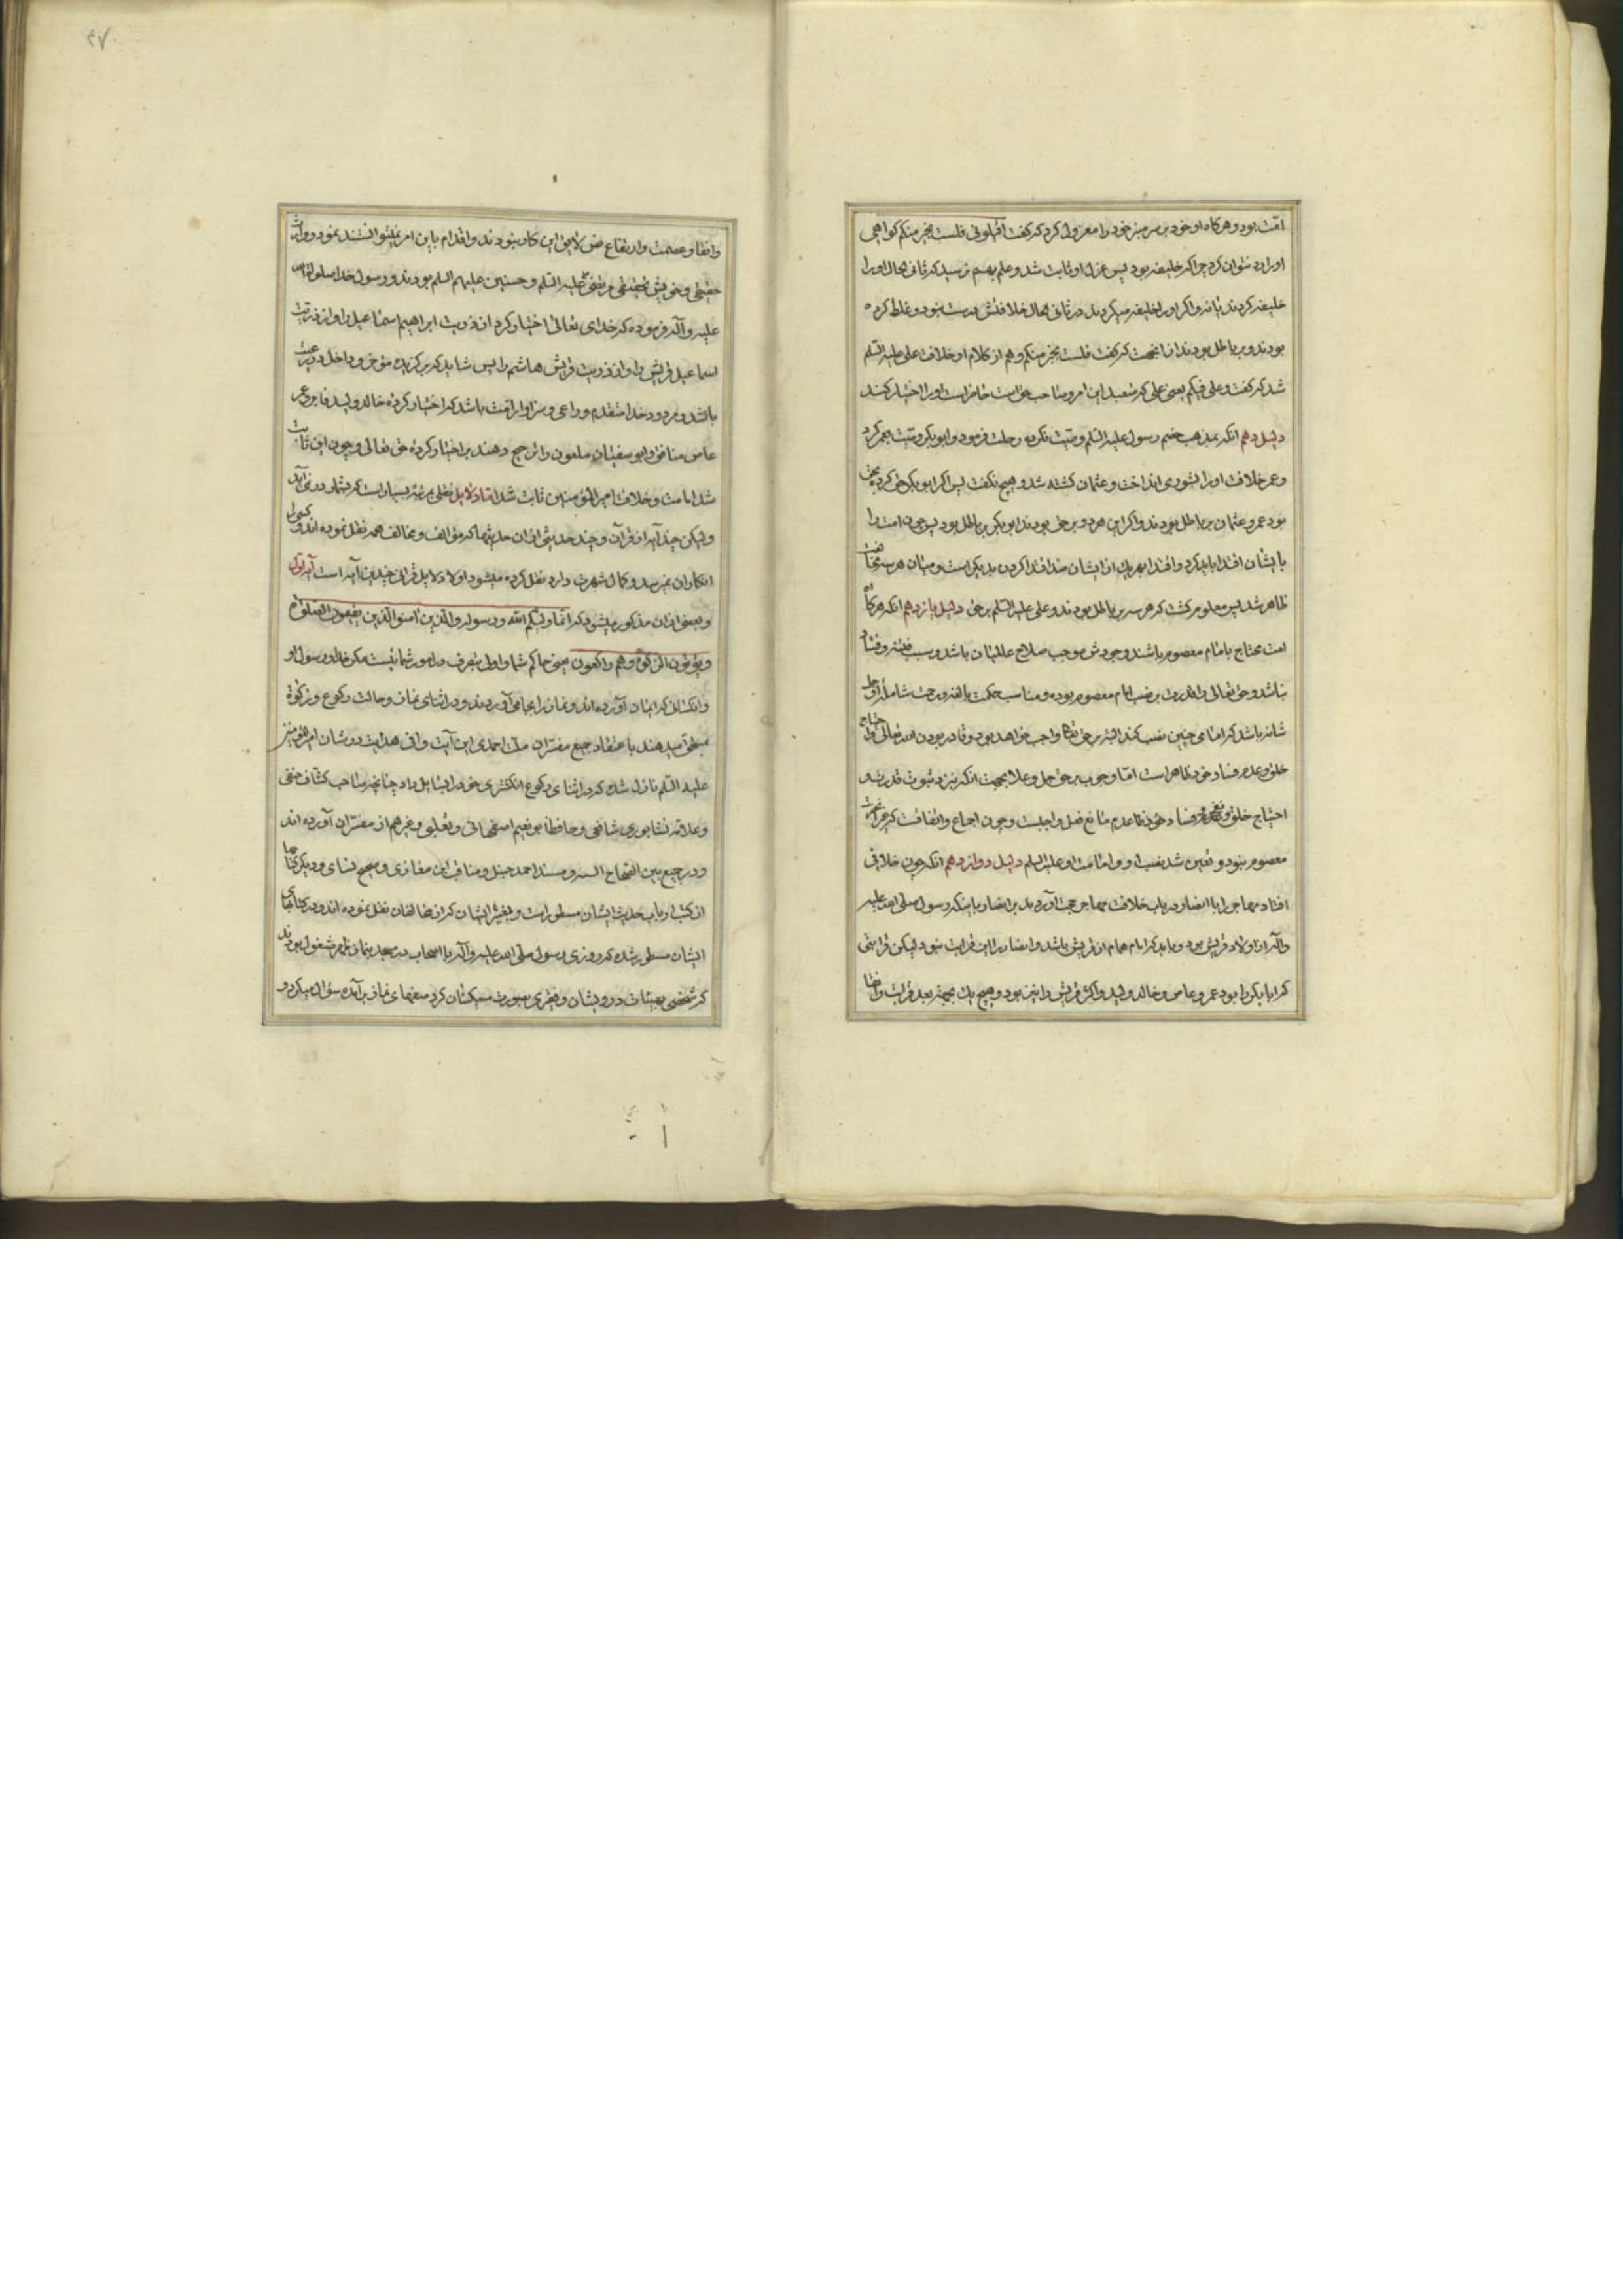 امّت بود و هرکاه او خود بر سر منبر خود را معزول کرد که گفت اقیلونی فلست بخیر منکم کواهی
او را رد نتوان کرد چرا کر خلیفه بود پس عزل او ثابت شد و علم بهم نرسید که ثانی الحال او را
خلیفه کردند یا نه و اکر او را خلیفه میکردند در ثانی الحال خلافتش درست نبود و غلط کرده
بودند و بر باطل بودند از انجهت که گفت فلست بخیر منکم و هم از کلام او خلافت علی علیه السّلم
شد که گفت و علی فیکم یعنی علی که متعبد این امر و صاحب حق است حاضر است او را اختیار کنید
دلیل دهم انکه بمذهب خصم رسول علیه السّلم وصیّت نکرده رحلت فرمود و ابو بکر وصیّت بعمر کرد
و عمر خلافت او را بشوری انداخت و عثمان کشته شد و هیچ نکفت پس اکر ابو بکر حق کرده بحق
بود عمر و عثمان بر باطل بودند و اکر این هر دو بر حق بودند ابو بکر بر باطل بود پس چون امت را
بایشان اقتدا باید کرد و اقتدا بهر یک از ایشان ضد اقتدا کردن بدیکر است و میان هر سه مخالفت
ظاهر شد پس معلوم کشت که هر سه بر باطل بودند و علی علیه السّلم بر حق دلیل یازدهم انکه هرکاه
امت محتاج بامام معصوم باشند و وجودش موجب صلاح عالمیان باشد و سبب فتنه و فساد
نباشد و حق تعالی را قدرت بر نصب امام معصوم بوده و مناسب حکمت بالغه و رحمت شامله او جل
شانه باشد که امامی چنین نصب کند البته بر حق تعالی واجب خواهد بود و قادر بودن الله تعالی و احتیاج
خلق و عدم فساد خود ظاهر است امّا وجوب بر حق جل و علا بجهت انکه نزد ثبوت قدرت و
احتیاج خلق و فساد خود و عدم مانع فعل واجبست و چون اجماع و اتفاقست که غیر از حضرت
معصوم نبود و تعیین شد نصب او و امامت او علیه السّلم دلیل دوازدهم انکه چون خلافی
افتاد مهاجر را با انصار در باب خلافت مهاجر حجت آوردند بر انصار باینکه رسول صلی الله علیه
و آله از اولاد قریش بود و باید که امام هم از قریش باشد و انصار را این قرابت نبود لیکن قرابتی
که ابا بکر را بود عمر و عاص و خالد ولید و اکثر قریش را نیز بود و هیچ یک بجهت بعد قرابت و انتفا
و اتقا و عصمت و ارتفاع لایق این کار نبودند و اقدام باین امر نمیتوانستند نمود و وارث
حقیقی و خویش تحقیقی مرتضی علی علیه السّلم و حسنین علیهم السلم بودند و رسول خدا صلوات الله
علیه و آله فرموده که خدای تعالی اختیار کرد از ذریت ابراهیم اسماعیل را و از ذریت
اسماعیل قریش را و از ذریت قریش هاشم را پس شاید که برکزیده مؤخر و داخل در رعیت
باشد و مردود خدا متقدم و راعی و سزاوار امّت باشد که اختیار کرده خالد ولید فاجر و عمر
عاص منافق و ابو سفیان ملعون را ترجیح دهند بر اختیار کرده حق تعالی و چون این ثابت
شد امامت و خلافت امیر المؤمنین ثابت شد امّا دلایل نقلی مرتبه بسیار است که بشمار در نمی آید
و لیکن چند آیه از قرآن و چند حدیثی از ان حدیثها که مؤالف و مخالف همه نقل نموده اند و کسی را
انکار ان نمیرسد و کمال شهرت دارد نقل کرده میشود اولا دلایل قرانی چندین آیه است آیه اول
و بعضی از ان مذکور میشود که انّما ولیکم الله و رسوله و الّذین آمنوا الّذین یقیمون الصّلوة
و یؤتون الزّکوة و هم راکعون یعنی حاکم شما و اولی بتصرف در امور شما نیست مکر خدا و رسول او
و انکسانی که ایمان آورده اند و نماز را بجا می آوردند و در اثنای نماز و حالت رکوع و زکوة
بمستحق میدهند باعتقاد جمیع مفسّران ملّت احمدی این آیت وافی هدایت در شان امیر المؤمنین
علیه السّلم نازل شده که در اثنای رکوع انکشتری خود را بسایل داد چنانچه صاحب کشاف حنفی
و علامه نشابوری شافعی و حافظ ابو نعیم اصفهانی و ثعلبی و غیرهم از مفسّران آورده اند
و در جمع بین الصّحاح السته و مسند احمد حنبل و مناقب ابن مغازی و صحیح نسای و دیکر کتابها
از کتب ارباب حدیث ایشان مسطور است و بغیر ایشان که از مخالفان نقل نموده اند و در کتابهای
ایشان مسطور شده که روزی رسول صلّی الله علیه و آله با اصحاب در مسجد بنماز ظهر مشغول بودند
که شخصی بهیئات درویشان و فقیری بصورت مسکینان کرد صفهای نماز بر آمده سؤال میکرد و